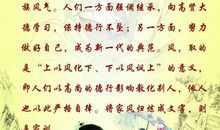 族风气。人们一方面强调继承，向高贤大
德学习，保持德行不坠；另一方面，努力
做好自己，成为新一代的典范。风，取的
是“上以风化下、下以风讽上”的意义，
即人们以高尚的德行影响教化别人，他人
也以此严格自律，将家风归炼成文字，则